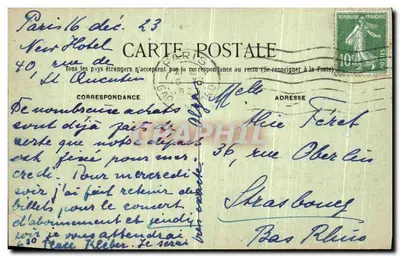 Paris 16 déc. 23
New Hotel
40 rue de
St Quentin
CARTE POSTALE
Tous les pays étrangers n'acceptent pas la correspondance au recto (Se renseigner à la Poste)
CORRESPONDANCE
ADRESSE
REPUBLIQUE FRANCAISE
10c
POSTES
PARIS
De nombreux achats
sont déjà faits
certe que notre départ
est fixé pour mer-
credi. Pour mercredi
soir j'ai fait retenir des
billets pour le concert
d'abonnement et jeudi
soir je vous attendrai
6 30 Place Kléber. Je serai
très exacte.
Melle
Alice Féret
36, rue Oberlin
Strasbourg
Bas Rhin